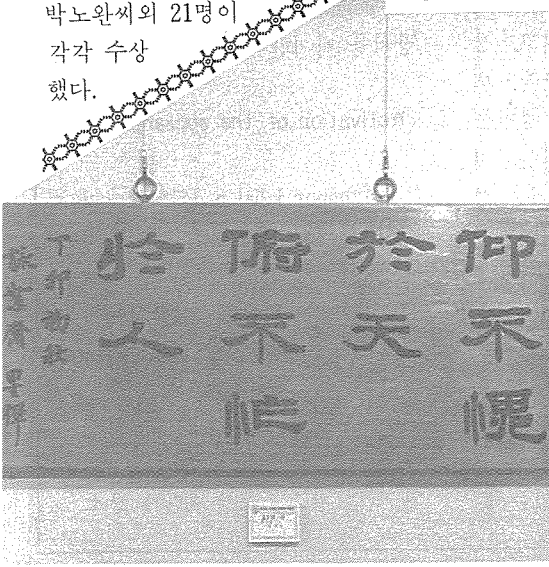 박노완씨외 21명이
각각 수상
했다.
仰不愧
於天
俯不怍
於人
丁卯初秋